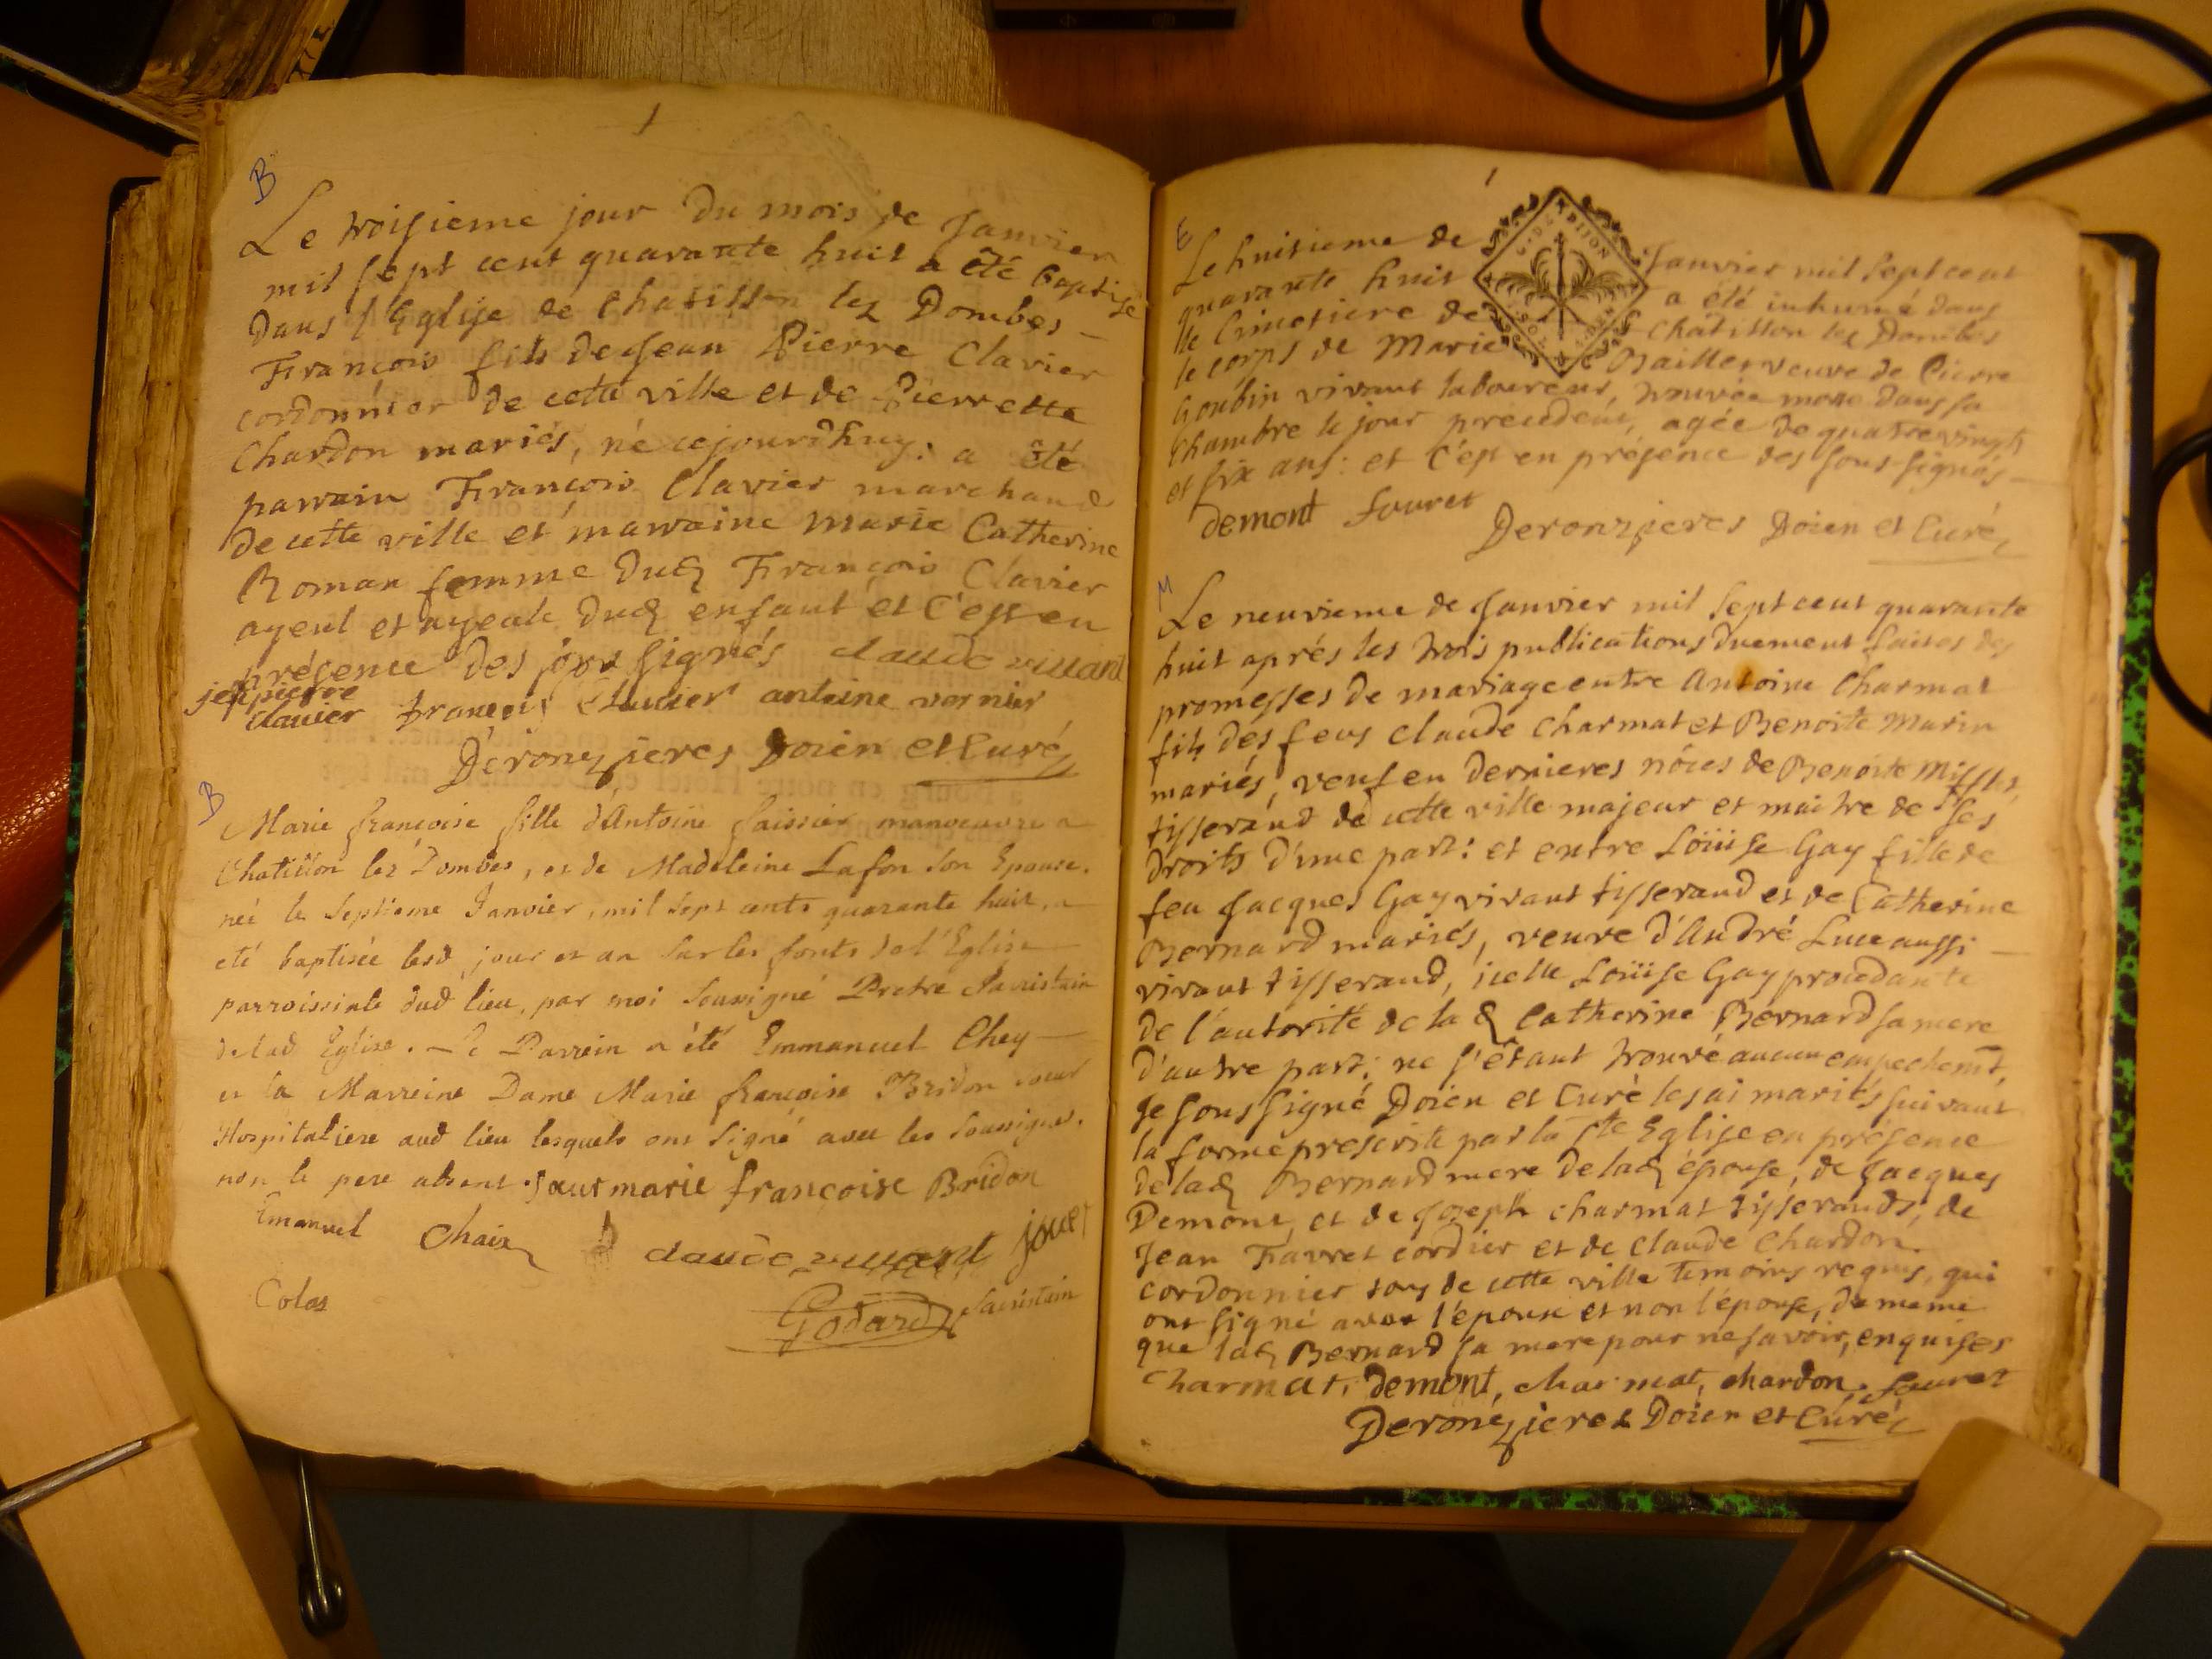 1
B
Le troisieme jour du mois de Janvier
mil sept cent quarante huit a été baptisé
dans l'Eglise de Chatillon lez Dombes
François fils de Jean Pierre Clavier
cordonnier de cette ville et de Pierrette
Chardon mariés, né cejourdhuy: a été
parrain François Clavier marchand
de cette ville et marraine marie Catherine
Roman femme dud François Clavier
ayeul et ayeule dud enfant et c'est en
présence des sous signés claude vuiant
jean pierre
clavier françois Clavier antoine vernier
Deronzieres Doien et Curé
B
Marie françoise fille d'Antoine faissier manoeuvre a
Chatillon lez Dombes, et de Madeleine Lafon son Epouse.
neé le septieme Janvier, mil sept cents quarante huit, a
eté baptisée lesd jour et an sur les fonts de l'Eglise
parroissiale dud lieu, par moi soussigné Pretre Sacristain
delad Eglise. Le Parrein a été Emmanuel Chey
et la Marreine Dame Marie françoise Bridon soeur
Hospitaliere aud lieu lesquels ont signé avec les soussignés.
non le pere absent. saeur marie françoise Bridon
Emanuel Chaix claude vuiant jouet
Colas
Godard Sacristain
1
E
Le huitieme de Janvier mil sept cent
quarante huit a été inhumé dans
le Cimetiere de Chatillon lez Dombes
le corps de Marie Bailler veuve de Pierre
Goubin vivant laboureur, trouvée morte dans sa
chambre le jour precedent, agée de quatre vingt
et six ans: et c'est en présence des sous signés
demont favret
Deronzieres Doien et Curé
M
Le neuvieme de Janvier mil sept cent quarante
huit aprés les trois publications duement faites des
promesses de mariage entre Antoine Charmat
fils des feus Claude Charmat et Benoite Marin
mariés, veuf en dernieres nôces de Benoite
tisserand de cette ville majeur et maitre de ses
droits d'une part: et entre Loüise Gay fille de
feu Jacques Gay vivant tisserand et de Catherine
Bernard mariés, veuve d'André Luce aussi
vivant tisserand, icelle Loüise Gay procedante
de l'autorité de la d Catherine Bernard sa mere
d'autre part; ne s'étant trouvé aucun empechemt,
Je sous signé Doien et Curé les ai mariés suivant
la forme prescrite par la ste Eglise en présence
delad Bernard mere delad épouse, de Jacques
Demont, et de Joseph charmat tisserands, de
Jean Favret cordier et de Claude Chardon
cordonnier tous de cette ville temoins requis, qui
ont signé avec l'epoux et non l'épouse, de meme
que lad Bernard sa mere pour ne savoir, enquises
charmat, demont, charmat, chardon, favret
Deronzieres Doien et Curé